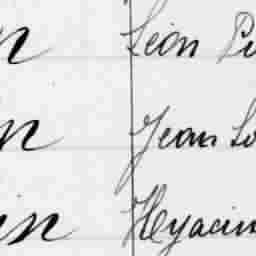 n Léon Pi
in Jean Lo
in Hyacin